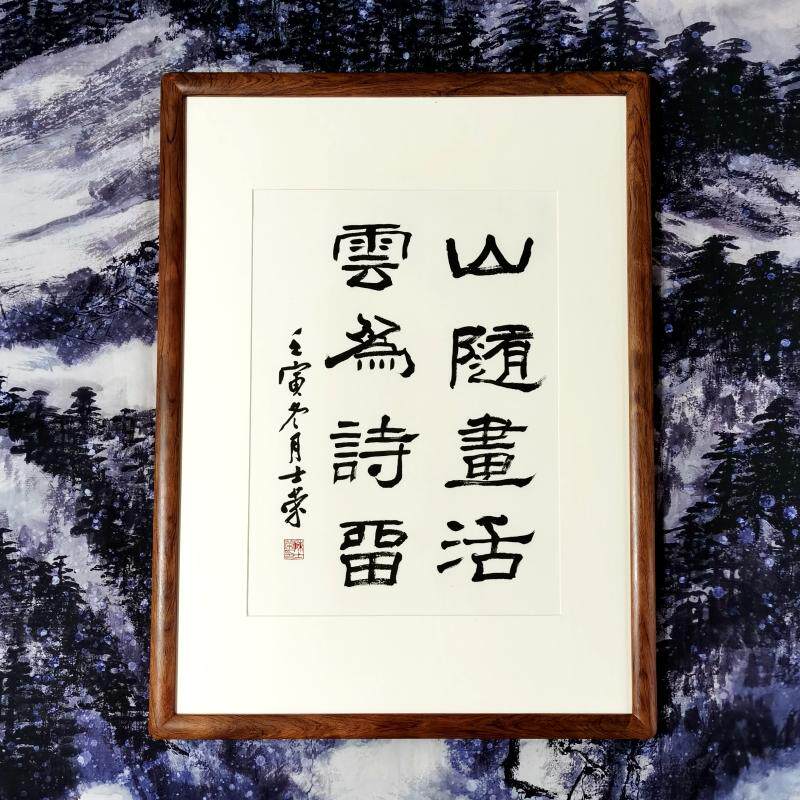 山隨畫活
雲為詩留
壬寅冬月士榮